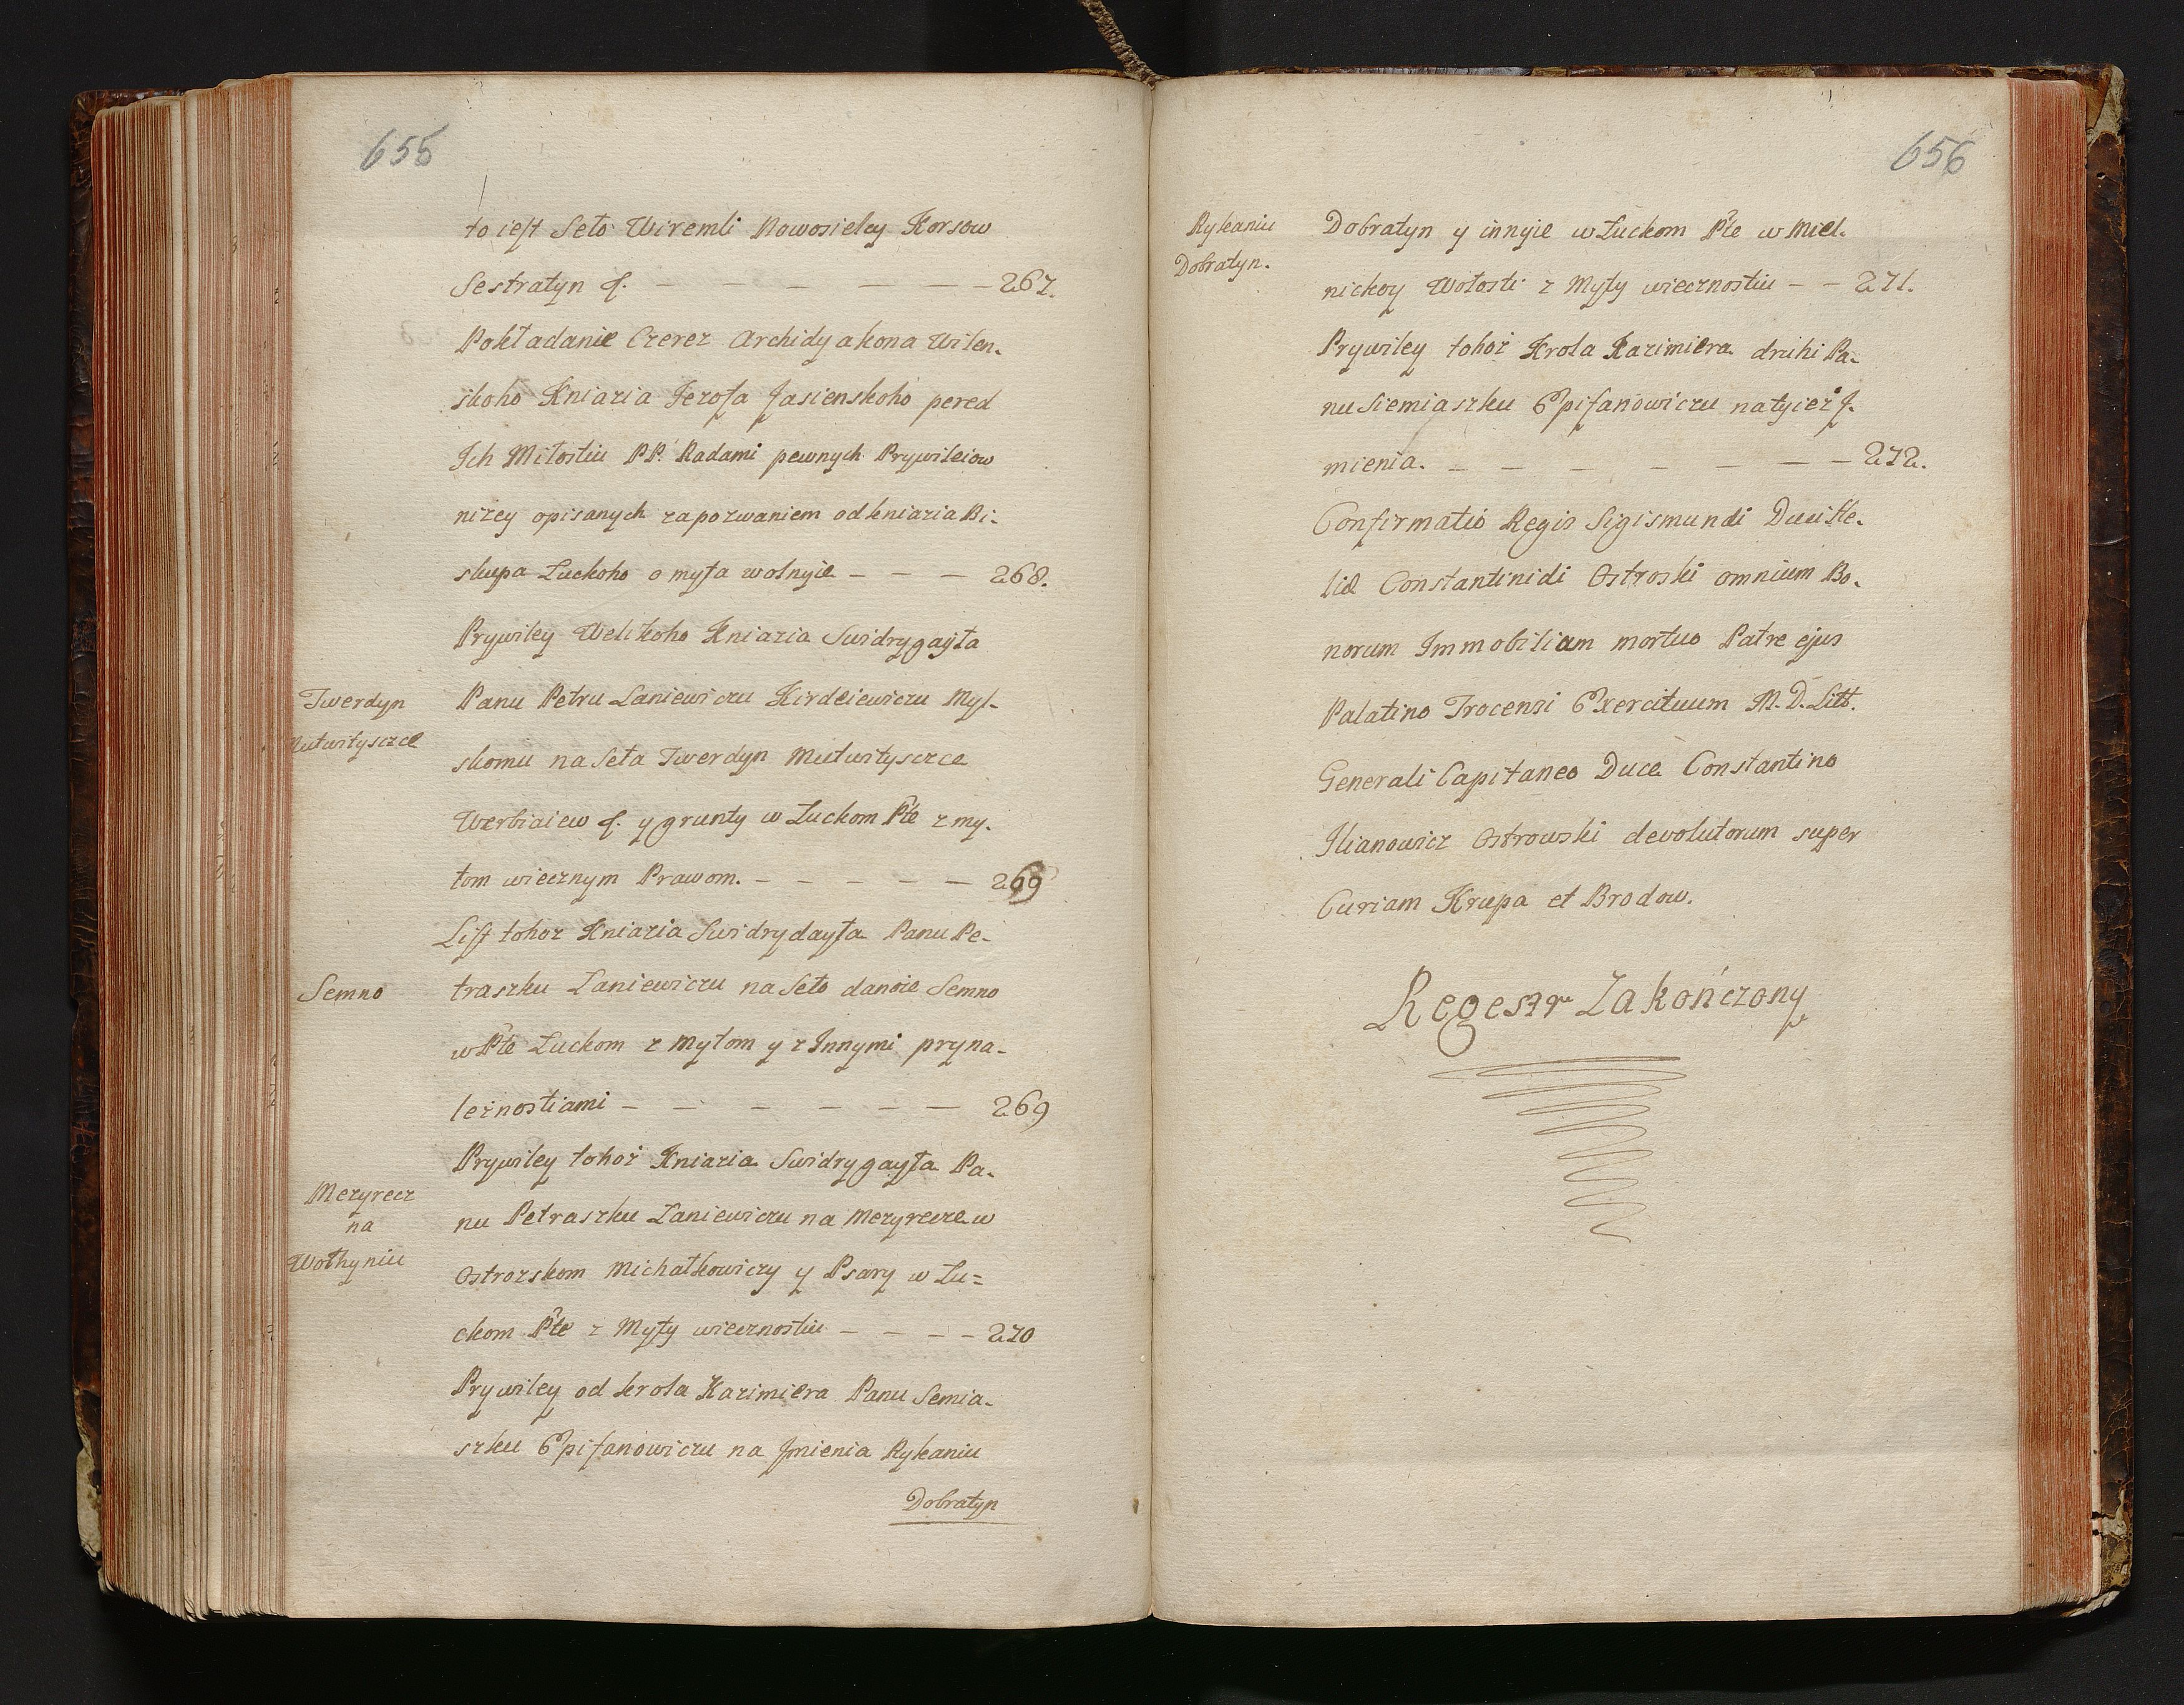 655
to iest Seło Wiremli Nowosielcy Korsow
Sestratyn &. — — — — — — 267.
Pokładanie Czerez Archidyakona Wilen-
skoho Kniazia Jezofa Jasienskoho pered
Ich Miłostiu PP. Radami pewnych Prywileiow
nizey opisanych zapozwaniem od kniazia Bi-
skupa Łuckoho o myta wolnyie — — — 268.
Prywiley Welikoho Kniazia Swidrygayła
Twerdyn
Mutwityszcze
Panu Petru Łaniewiczu Kirdeiewiczu Myl-
skomu na Seła Twerdyn Mutwityszcze
Werbiaiew &. y grunty w Łuckom Pte z my-
tom wiecznym Prawom. — — — — — 269
List tohoz Kniazia Swidrydayła Panu Pe-
Semno
traszku Łaniewiczu na Seło danoie Semno
w Pte Łuckom z Mytom y z Innymi pryna-
leżnostiami — — — — — — 269
Prywiley tohoż Kniazia Swidrygayła Pa-
Mezyrecz
na
Wołhyniu
nu Petraszku Łaniewiczu na Mezyrecze w
Ostrozskom Michałkowiczy y Psary w Łu=
ckom Pte z Myty wiecznostiu — — — — 270
Prywiley od krola Kazimiera Panu Semia-
szku Epifanowiczu na Jmienia Rykaniu
Dobratyn
656
Rykaniu
Dobratyn.
Dobratyn y innyie w Łuckom Pte w Miel-
nickoy Wołosti z Myty wiecznostiu — — 271.
Prywiley tohoż Krola Kazimiera druhi Pa-
nu Siemiaszku Epifanowiczu na tyież J-
mienia. — — — — — — — 272.
Confirmatio Regis Sigismundi Duci He-
liæ Constantinidi Ostroski omnium Bo-
norum Immobiliam mortuo Patre ejus
Palatino Trocensi Exercituum M. D. Litt.
Generali Capitaneo Duce Constantino
Ilianowicz Ostrowski devolutorum super
Curiam Krupa et Brodow.
Regestr Zakończony